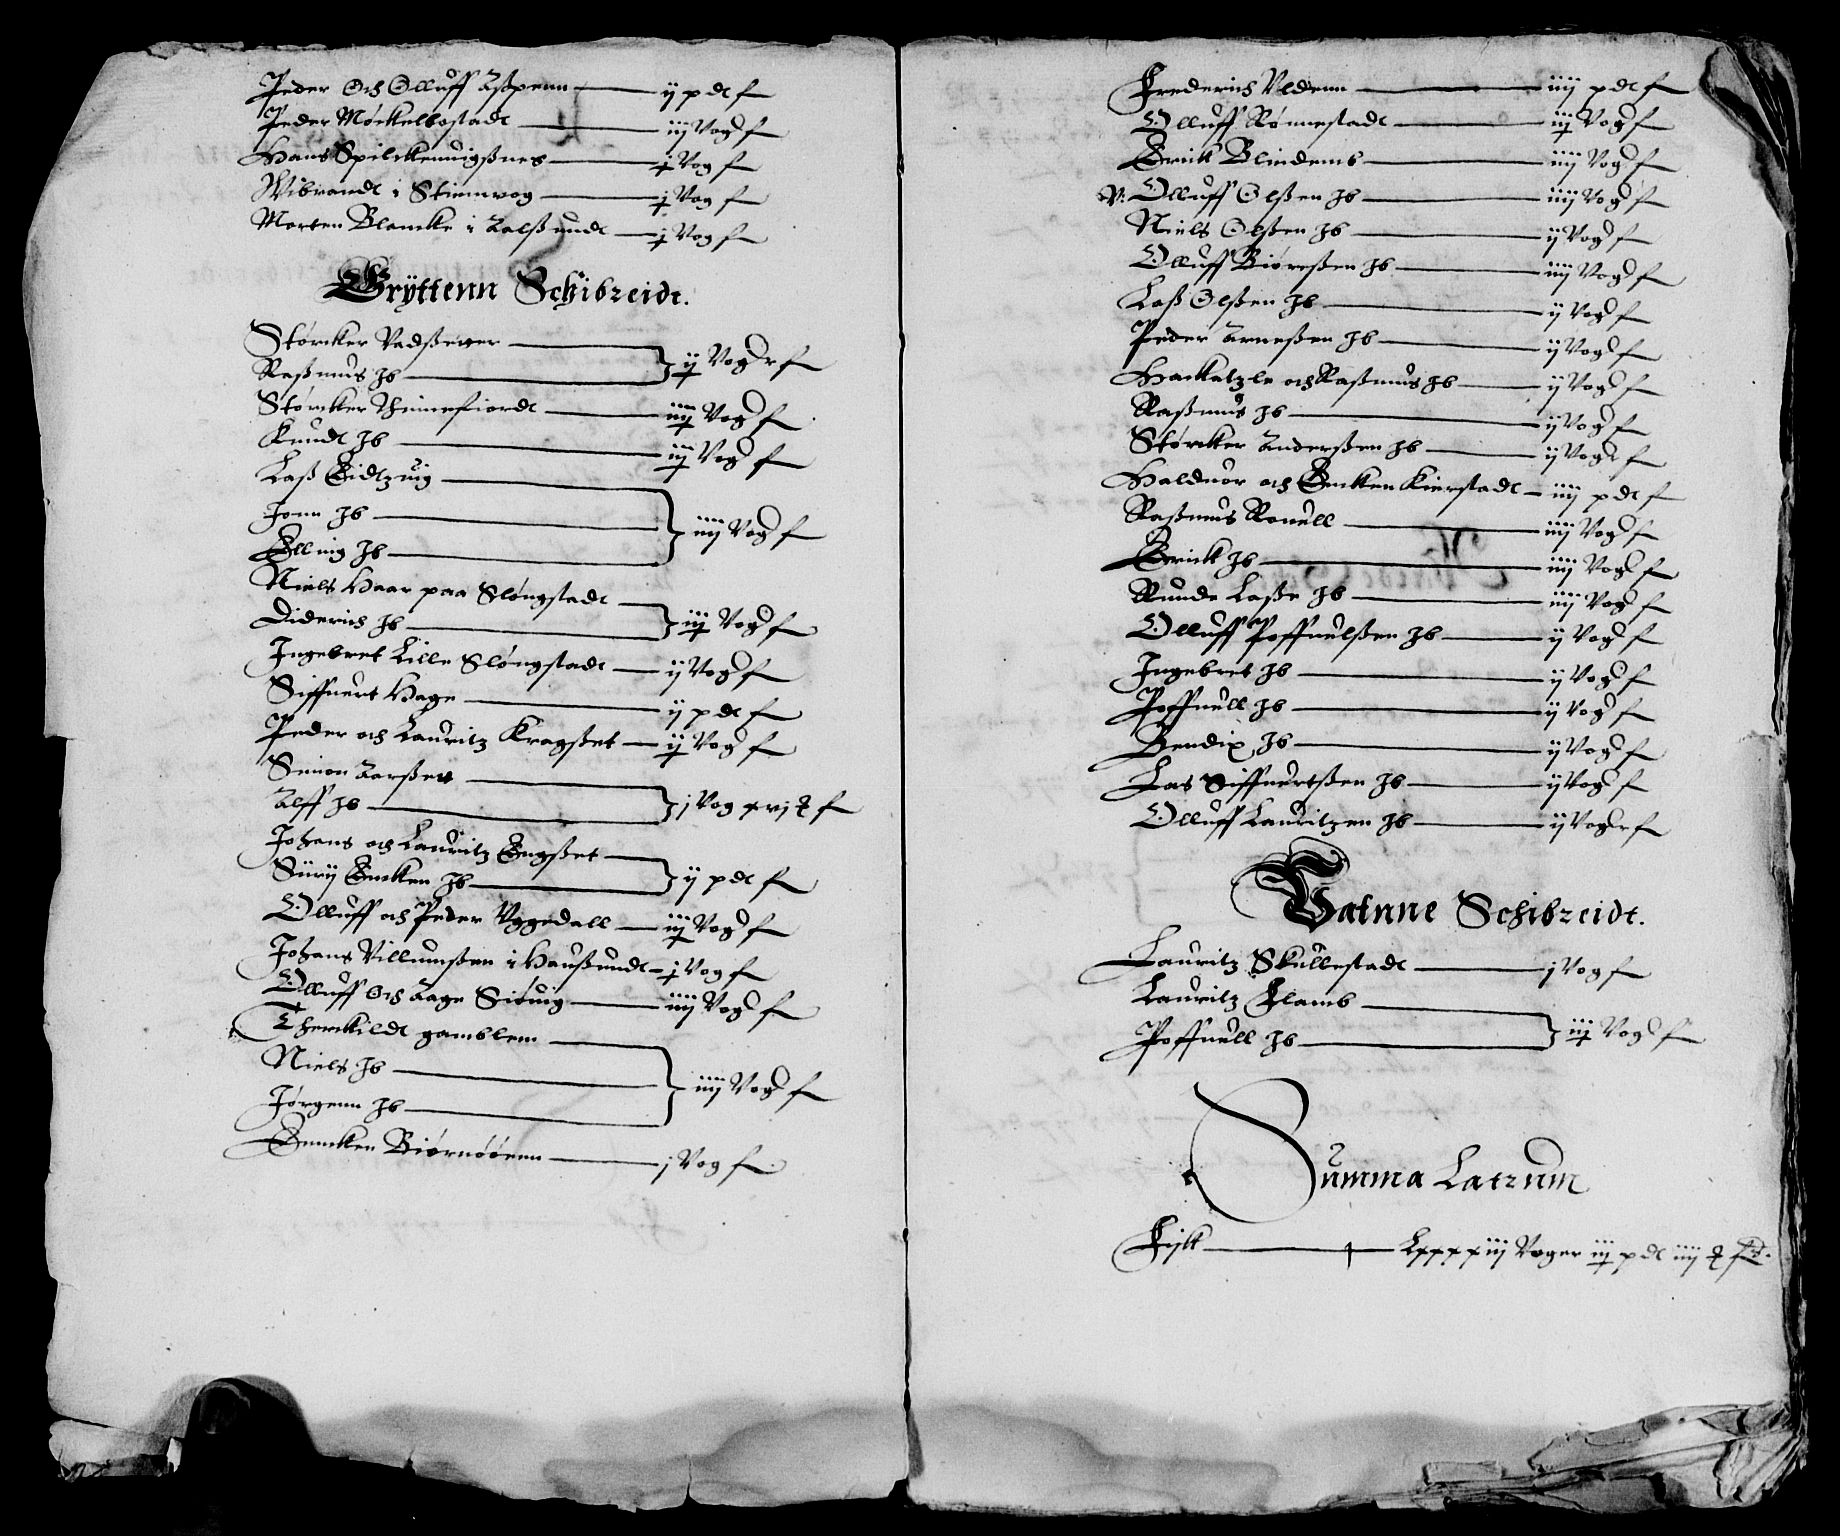 Peder Och Olluff Aßpenn — ij pdt f
Peder Møckelbostadt — iij Vog f
Hans Spilckeuuigßnes — j Vog f
Wibrandt i Stennvog — j Vog f
Morten Blancke i Aalßundt — j Vog f
Gryttenn Schibreidt.
Størcker Vadßetter
Raßmus Jb — ij Vog r f
Størcker Thinnefiordt — iiij Vog f
Knudt Jb — iij Vog f
Laß Eidtzuig
Jonn Jb — iiij Vog f
Elling Jb
Niels Haar paa Sløngstadt
Diderich Jb — iij Vog f
Ingebret Lille Sløngstadt — ij Vog f
Siffuert Hage — ij pdt f
Peder och Lauritz Kragßet — ij Vog f
Simon Aarßett
Alff Jb — j Vog xvj f
Johans och Lauritz Engßet
Siurij Encken Jb — ij pdt f
Olluff och Peder Vggedall — iij Vog f
Johans Villumßen i Haußundt — j Vog f
Olluff Och Aage Sitouig — iiij Vog f
Therckildt gamblem
Niels Jb — iiij Vog f
Jørgenn Jb
Enncken Biørnøøenn — j Vog f
Frederich Vldenn — iiij pdt f
Olluff Rønnestadt — iij Vog f
Erick Blindemb — iiij Vog f
V: Olluff Olßen Jb — iiij Vog f
Niels Olßen Jb — ij Vog f
Olluff Biørnßen Jb — iiij Vog f
Laß Olßen Jb — ij Vog f
Peder Arneßen Jb — ij Vog f
Hackatzle och Raßmus Jb — ij Vog f
Raßmus Jb — ij Vog f
Størcker Anderßen Jb — ij Vog r f
Halduor och Encken Kierstadt — iiij pdt f
Raßmus Rouell — iiij Vog f
Erick Jb — iiij Vog f
Runde Laße Jb — iiij Vog f
Olluff Poffuelßen Jb — ij Vog f
Ingebret Jb — ij Vog f
Poffuell Jb — ij Vog f
Bendix Jb — ij Vog f
Las Siffuertßen Jb — ij Vog f
Olluff Lauritzen Jb — ij Vog r f
Vatnne Schibreidt.
Lauritz Skullestadt — j Vog f
Lauritz Flamb
Poffuell Jb — iij Vog f
Summa Latrum
Fisk — Lxxxxiij Voger iij pdt iiij